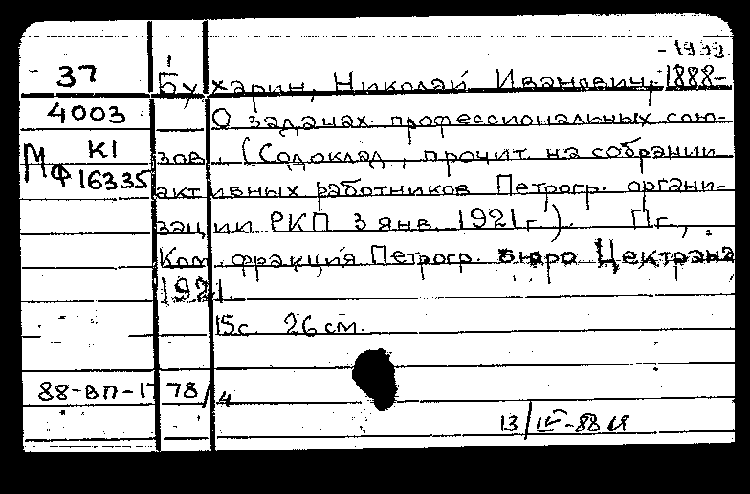 -1938
37
Бухарин, Николай Иванович, 1888-
4003
О задачах профессиональных сою-
К1
зов. (Содоклад, прочит. на собрании
МФ 16335
активных работников Петрогр. органи-
зации РКП 3 янв. 1921 г.). Пг.,
Ком. фракция Петрогр. бюро Цектрана
1921.
15 с. 26 см.
88-ВП-1778/4
13/IV-88